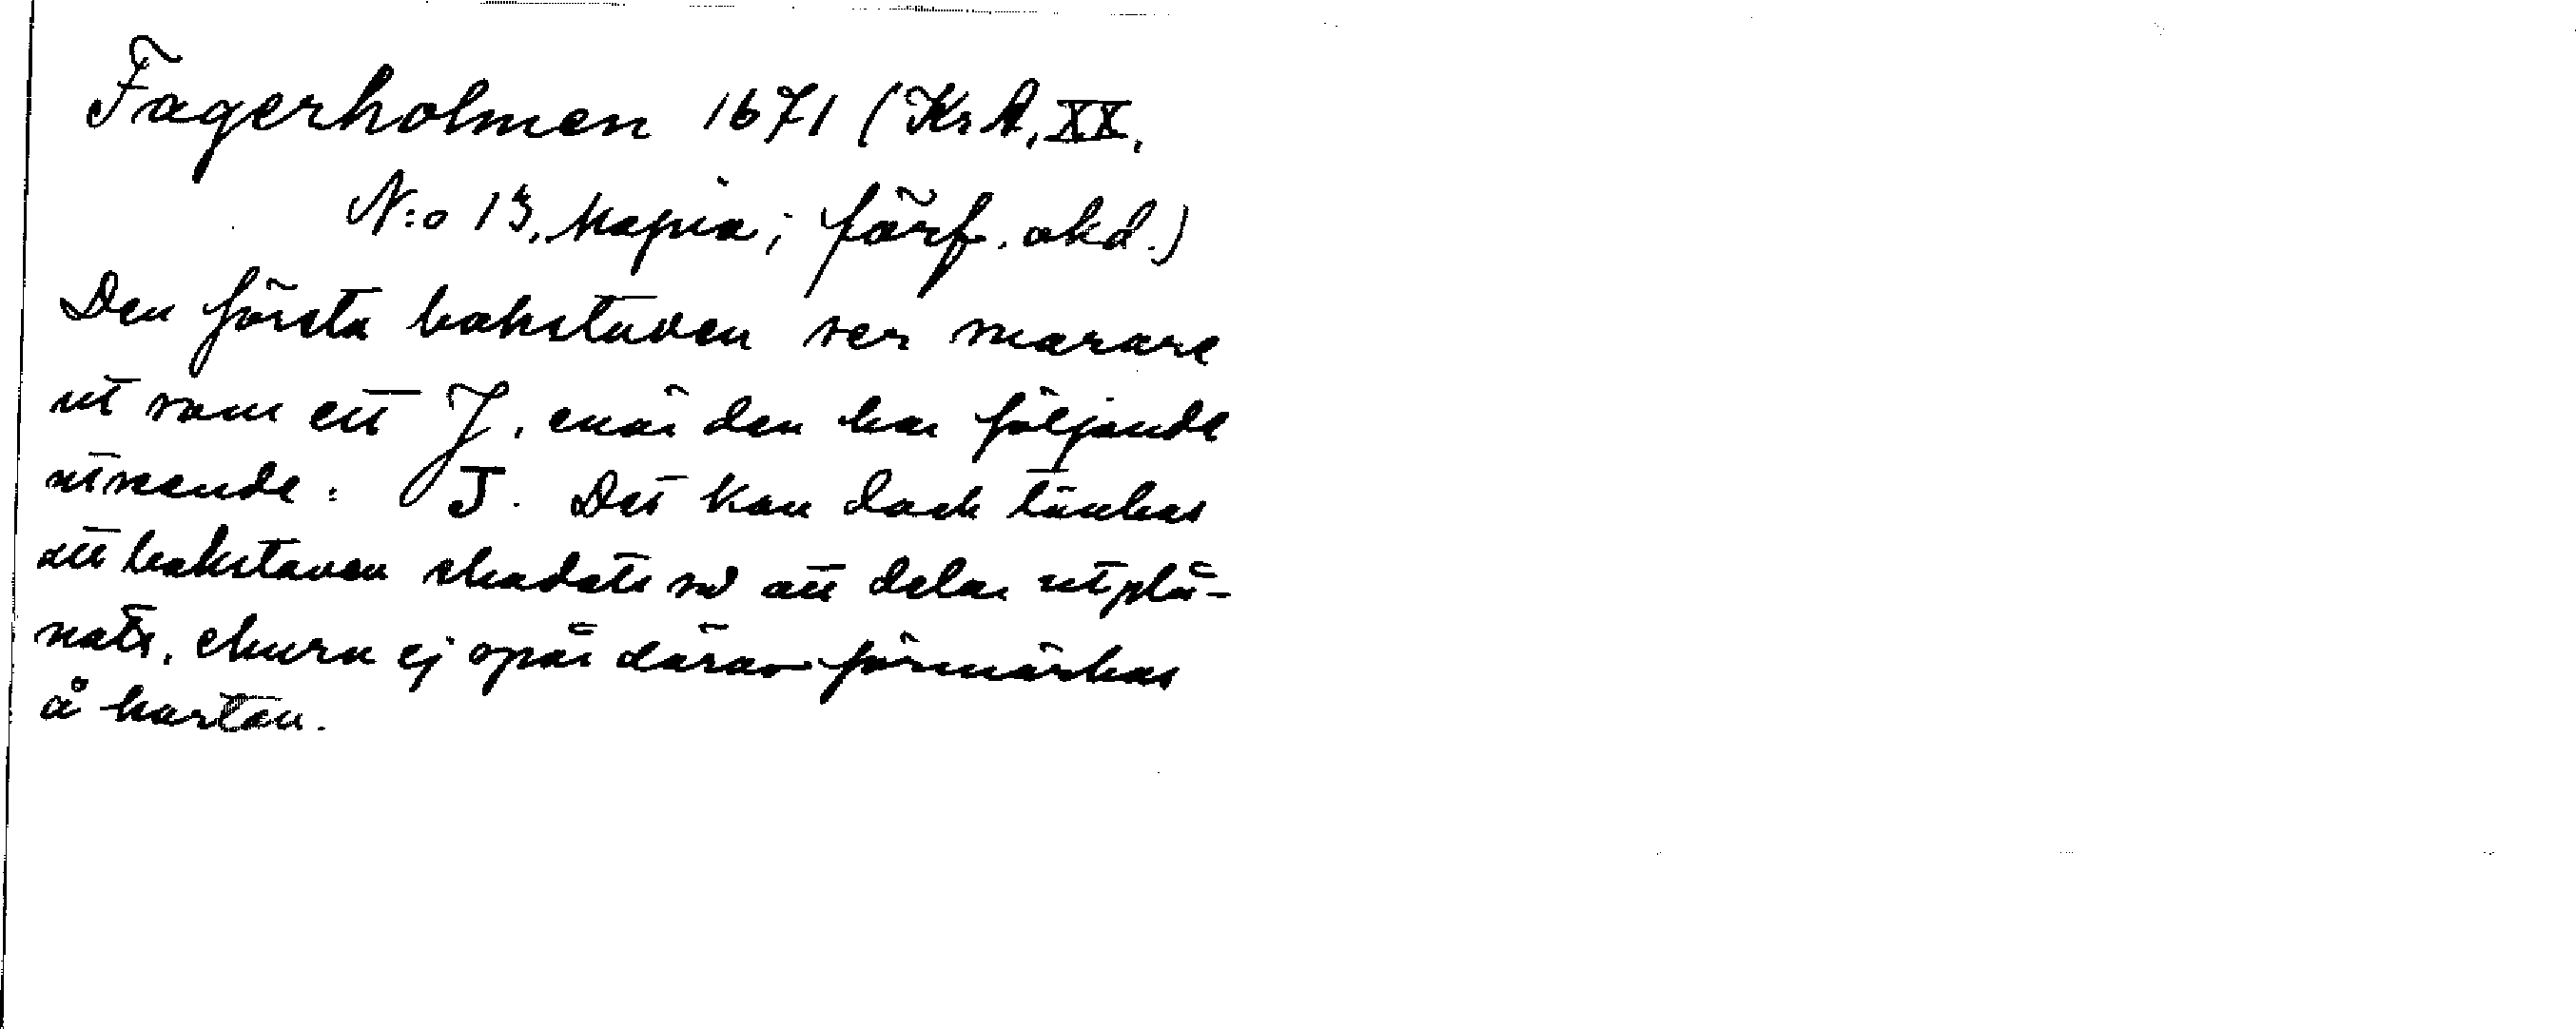 Fagerholmen 1671 (Kr A, XX,
N:o 13, kopia; förf. okd.)
Den första bokstaven ser snarare
ut som ett J, enär den har följande
utseende: J. Det kan dock tänkas
att bokstaven skadats så att delar utplå-
nats, ehuru ej spår därav förmärkas
å kartan.